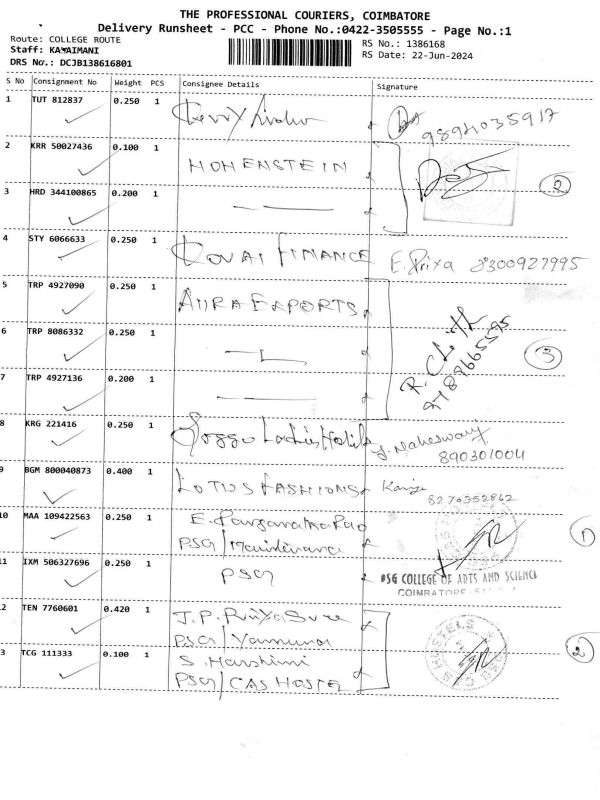 THE PROFESSIONAL COURIERS, COIMBATORE
Delivery Runsheet - PCC - Phone No.:0422-3505555 - Page No.:1
Route: COLLEGE ROUTE
RS No.: 1386168
Staff: KAYAIMANI
RS Date: 22-Jun-2024
DRS No.: DCJB138616801
S No Consignment No Weight PCS Consignee Details Signature
1 TUT 812837 0.250 1
9894035917
2 KRR 50027436 0.100 1 HOHENSTEIN
2
3 HRD 344100865 0.200 1
4 STY 6066633 0.250 1 KOVAI FINANCE E. Priya 8300927995
5 TRP 4927090 0.250 1 AURA EXPORTS
6 TRP 8086332 0.250 1
3
7 TRP 4927136 0.200 1
8 KRG 221416 0.250 1 Maheswary
890301004
9 BGM 800040873 0.400 1 LOTUS FASHIONS
8270352862
10 MAA 109422563 0.250 1 E.
PSG/Maintenance
1
11 IXM 506327696 0.250 1 PSG
PSG COLLEGE OF ARTS AND SCIENCE
COIMBATORE
2 TEN 7760601 0.420 1 J.P.
PSG/Yamuna
HOSTELS
2
3 TCG 111333 0.100 1 S. Harshini
PSG/CAS HOSTEL